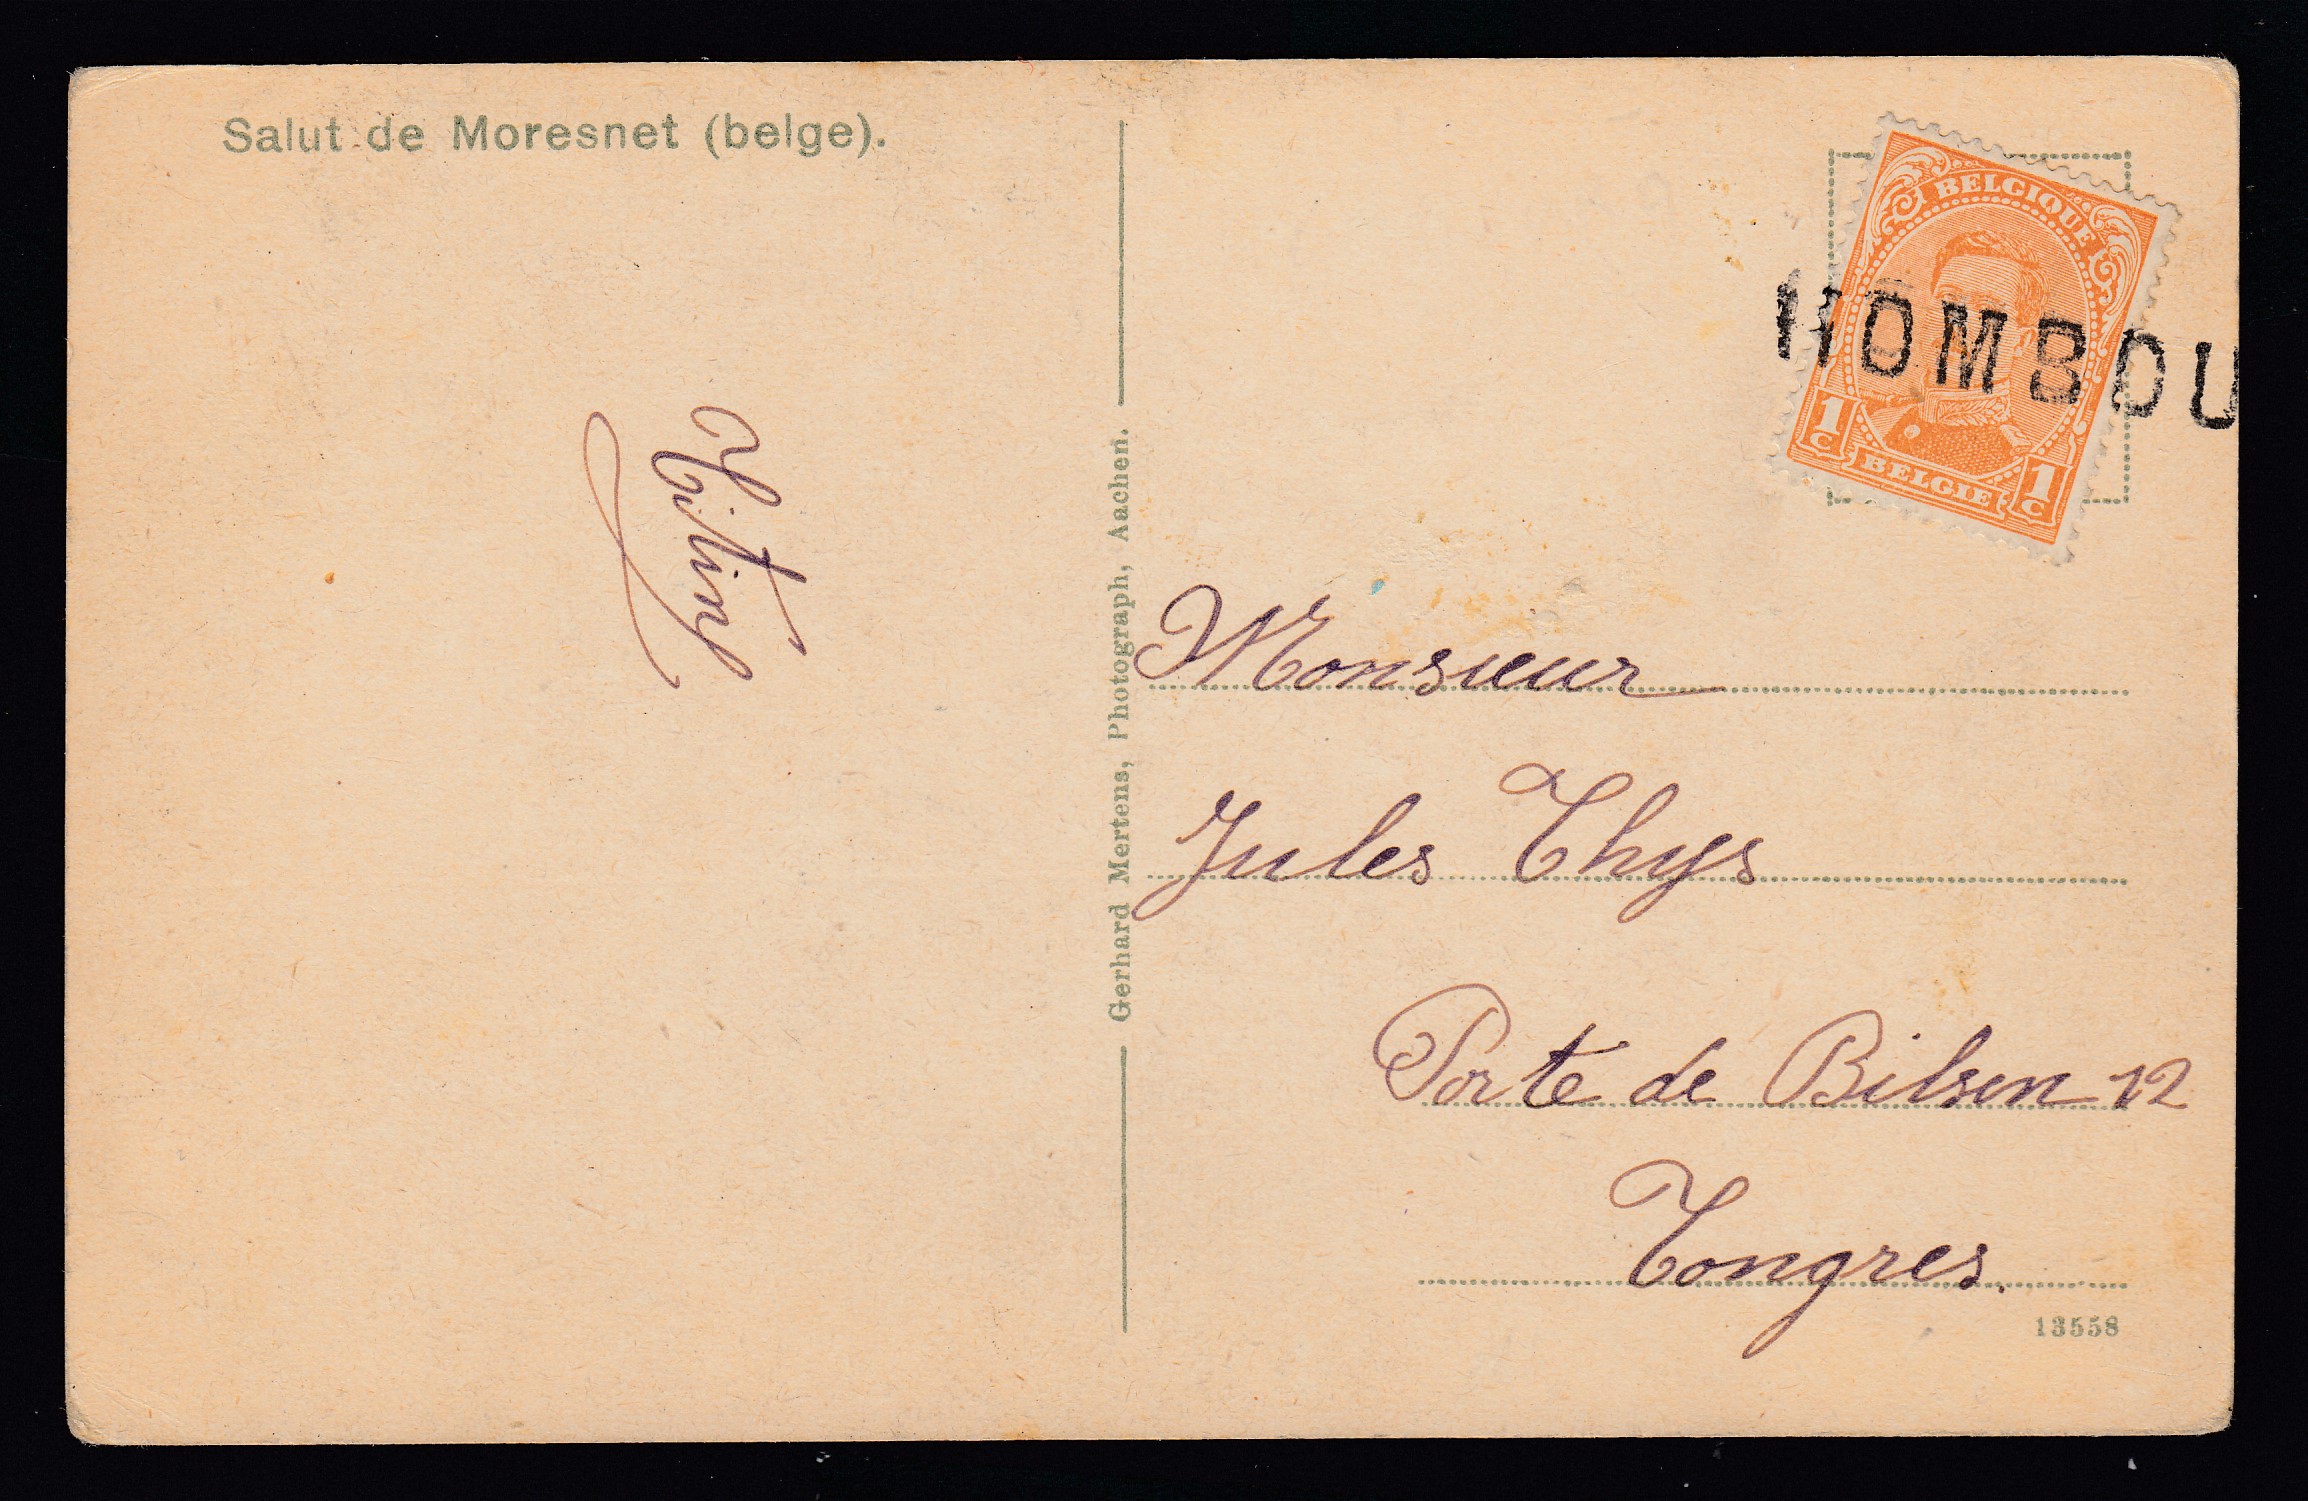 Salut de Moresnet (belge).
BELGIQUE
HOMBOU
1c 1c
BELGIE
Gerhard Mertens, Photograph, Aachen.
Monsieur
Jules Thys
Porte de Bilsen 12
Tongres.
13558